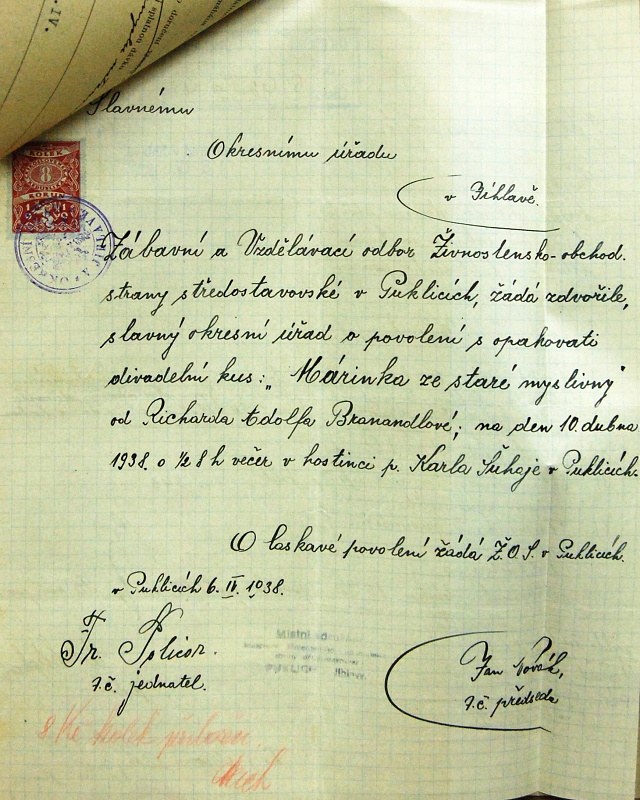 IV.
splatnou dávku
doručení
Slavnému
Okresnímu úřadu
v Jihlavě.
KOLEK
8
KORUN
Zábavní a Vzdělávací odbor Živnostensko-obchod.
strany středostavovské v Puklicích, žádá zdvořile,
slavný okresní úřad o povolení s opakovati
divadelní kus: „Márinka ze staré myslivny"
od Richarda Adolfa Branandlové; na den 10. dubna
1938. o ½8 h večer v hostinci p. Karla Šuhaje v Puklicích.
O laskavé povolení žádá Ž.O.S. v Puklicích.
v Puklicích 6. IV. 1938.
Fr. Policar.
t.č. jednatel.
Místní
Jan Novák,
t.č. předseda
8 Kč kolek